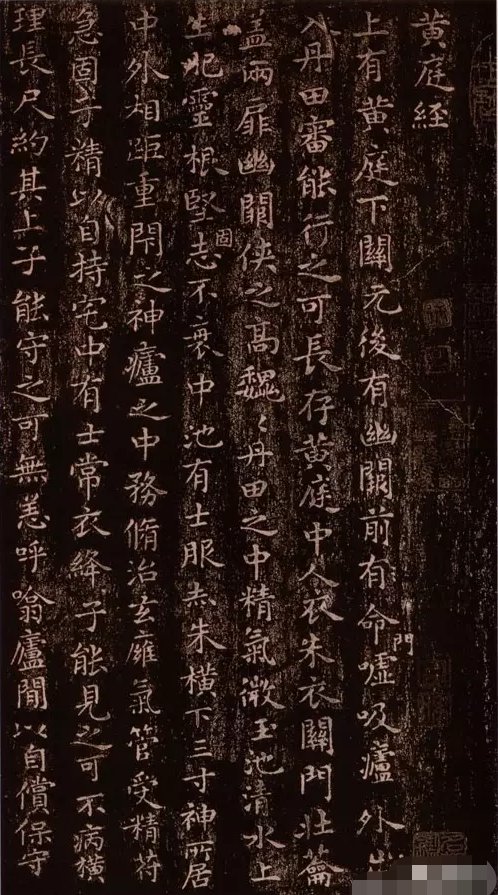 黄庭經
上有黄庭下關元後有幽闕前有命門噓吸廬外出
入丹田審能行之可長存黄庭中人衣朱衣關門壯蘥
盖兩扉幽闕俠之髙魏〻丹田之中精氣微玉池清水上
生肥靈根堅固志不衰中池有士服赤朱横下三寸神所居
中外相距重閇之神廬之中務脩治玄廱氣管受精苻
急固子精以自持宅中有士常衣絳子能見之可不病横
理長尺約其上子能守之可無恙呼噏廬間以自償保守